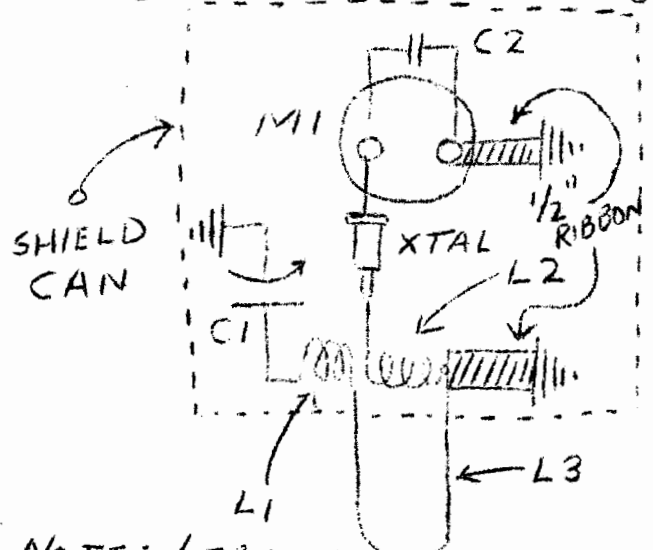 C2
M1
SHIELD
CAN
1/2"
RIBBON
XTAL
L2
C1
L3
L1
NOTE: